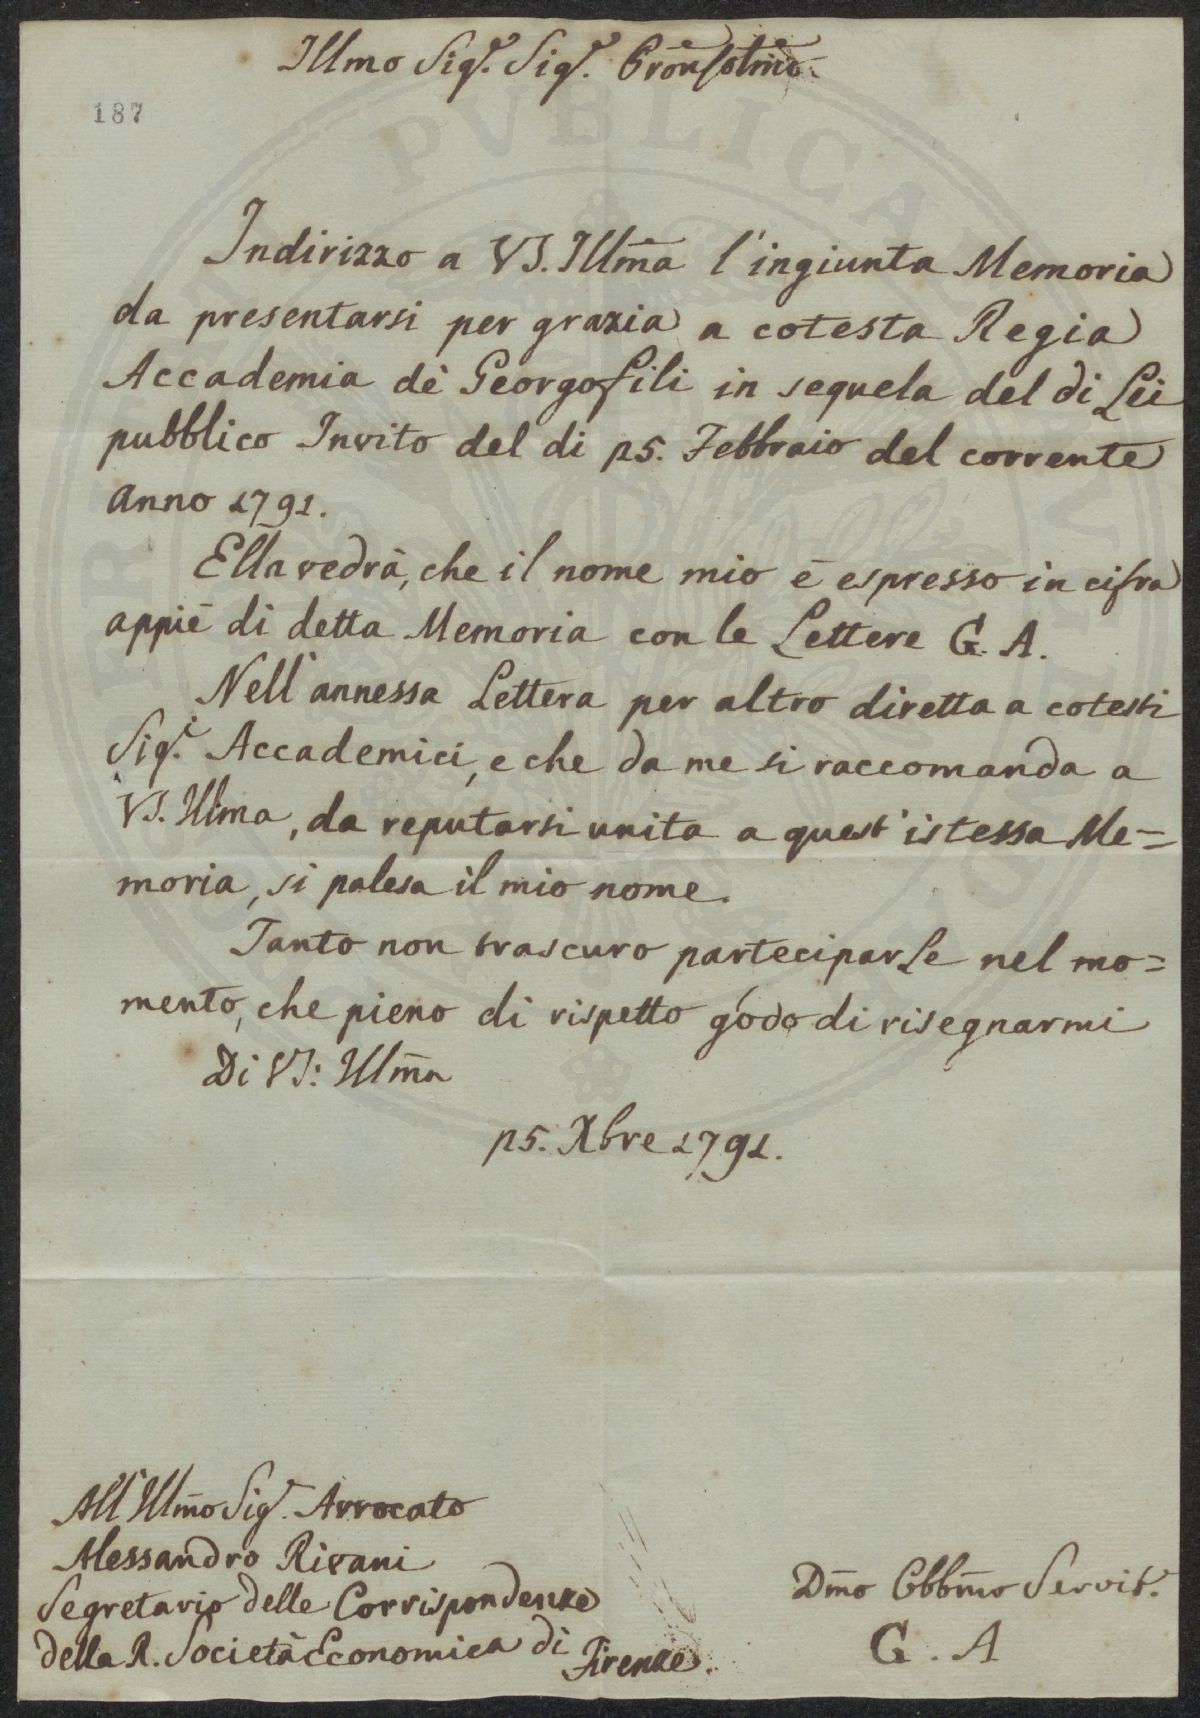 Illmo Sigre. Sigre. Pron Colmo.
187
Indirizzo a VS. Illma l'ingiunta Memoria
da presentarsi per grazia a cotesta Regia
Accademia dè Georgofili in sequela del di Lei
pubblico Invito del di 15. Febbraio del corrente
anno 1791.
Ella vedrà, che il nome mio è espresso in cifra
appiè di detta Memoria con le Lettere G. A.
Nell'annessa Lettera per altro diretta a cotesti
Sigri. Accademici, e che da me si raccomanda a
VS. Illma, da reputarsi unita a quest'istessa Me=
moria, si palesa il mio nome.
Tanto non trascuro parteciparLe nel mo=
mento, che pieno di rispetto godo di risegnarmi
Di VS: Illma
15. Xbre 1791.
All'Illmo Sigr. Avvocato
Alessandro Rivani
Segretario delle Corrispondenze
della R. Società Economica di Firenze.
Dmo Obbmo Servit.
G. A